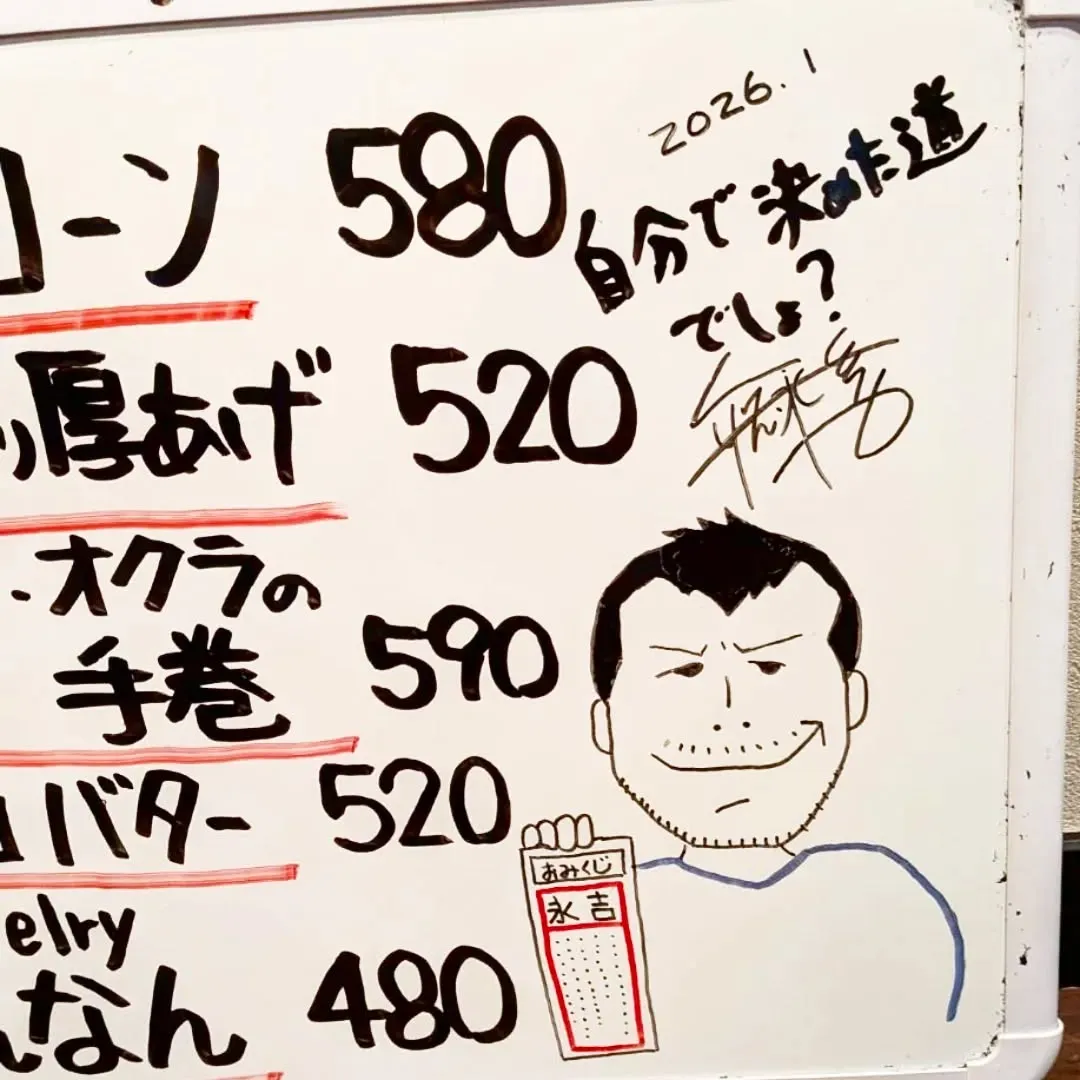 コーン 580
厚あげ 520
・オクラの
手巻 590
バター 520
elry
なん 480
2026.1
自分で決めた道
でしょ?
おみくじ
永吉